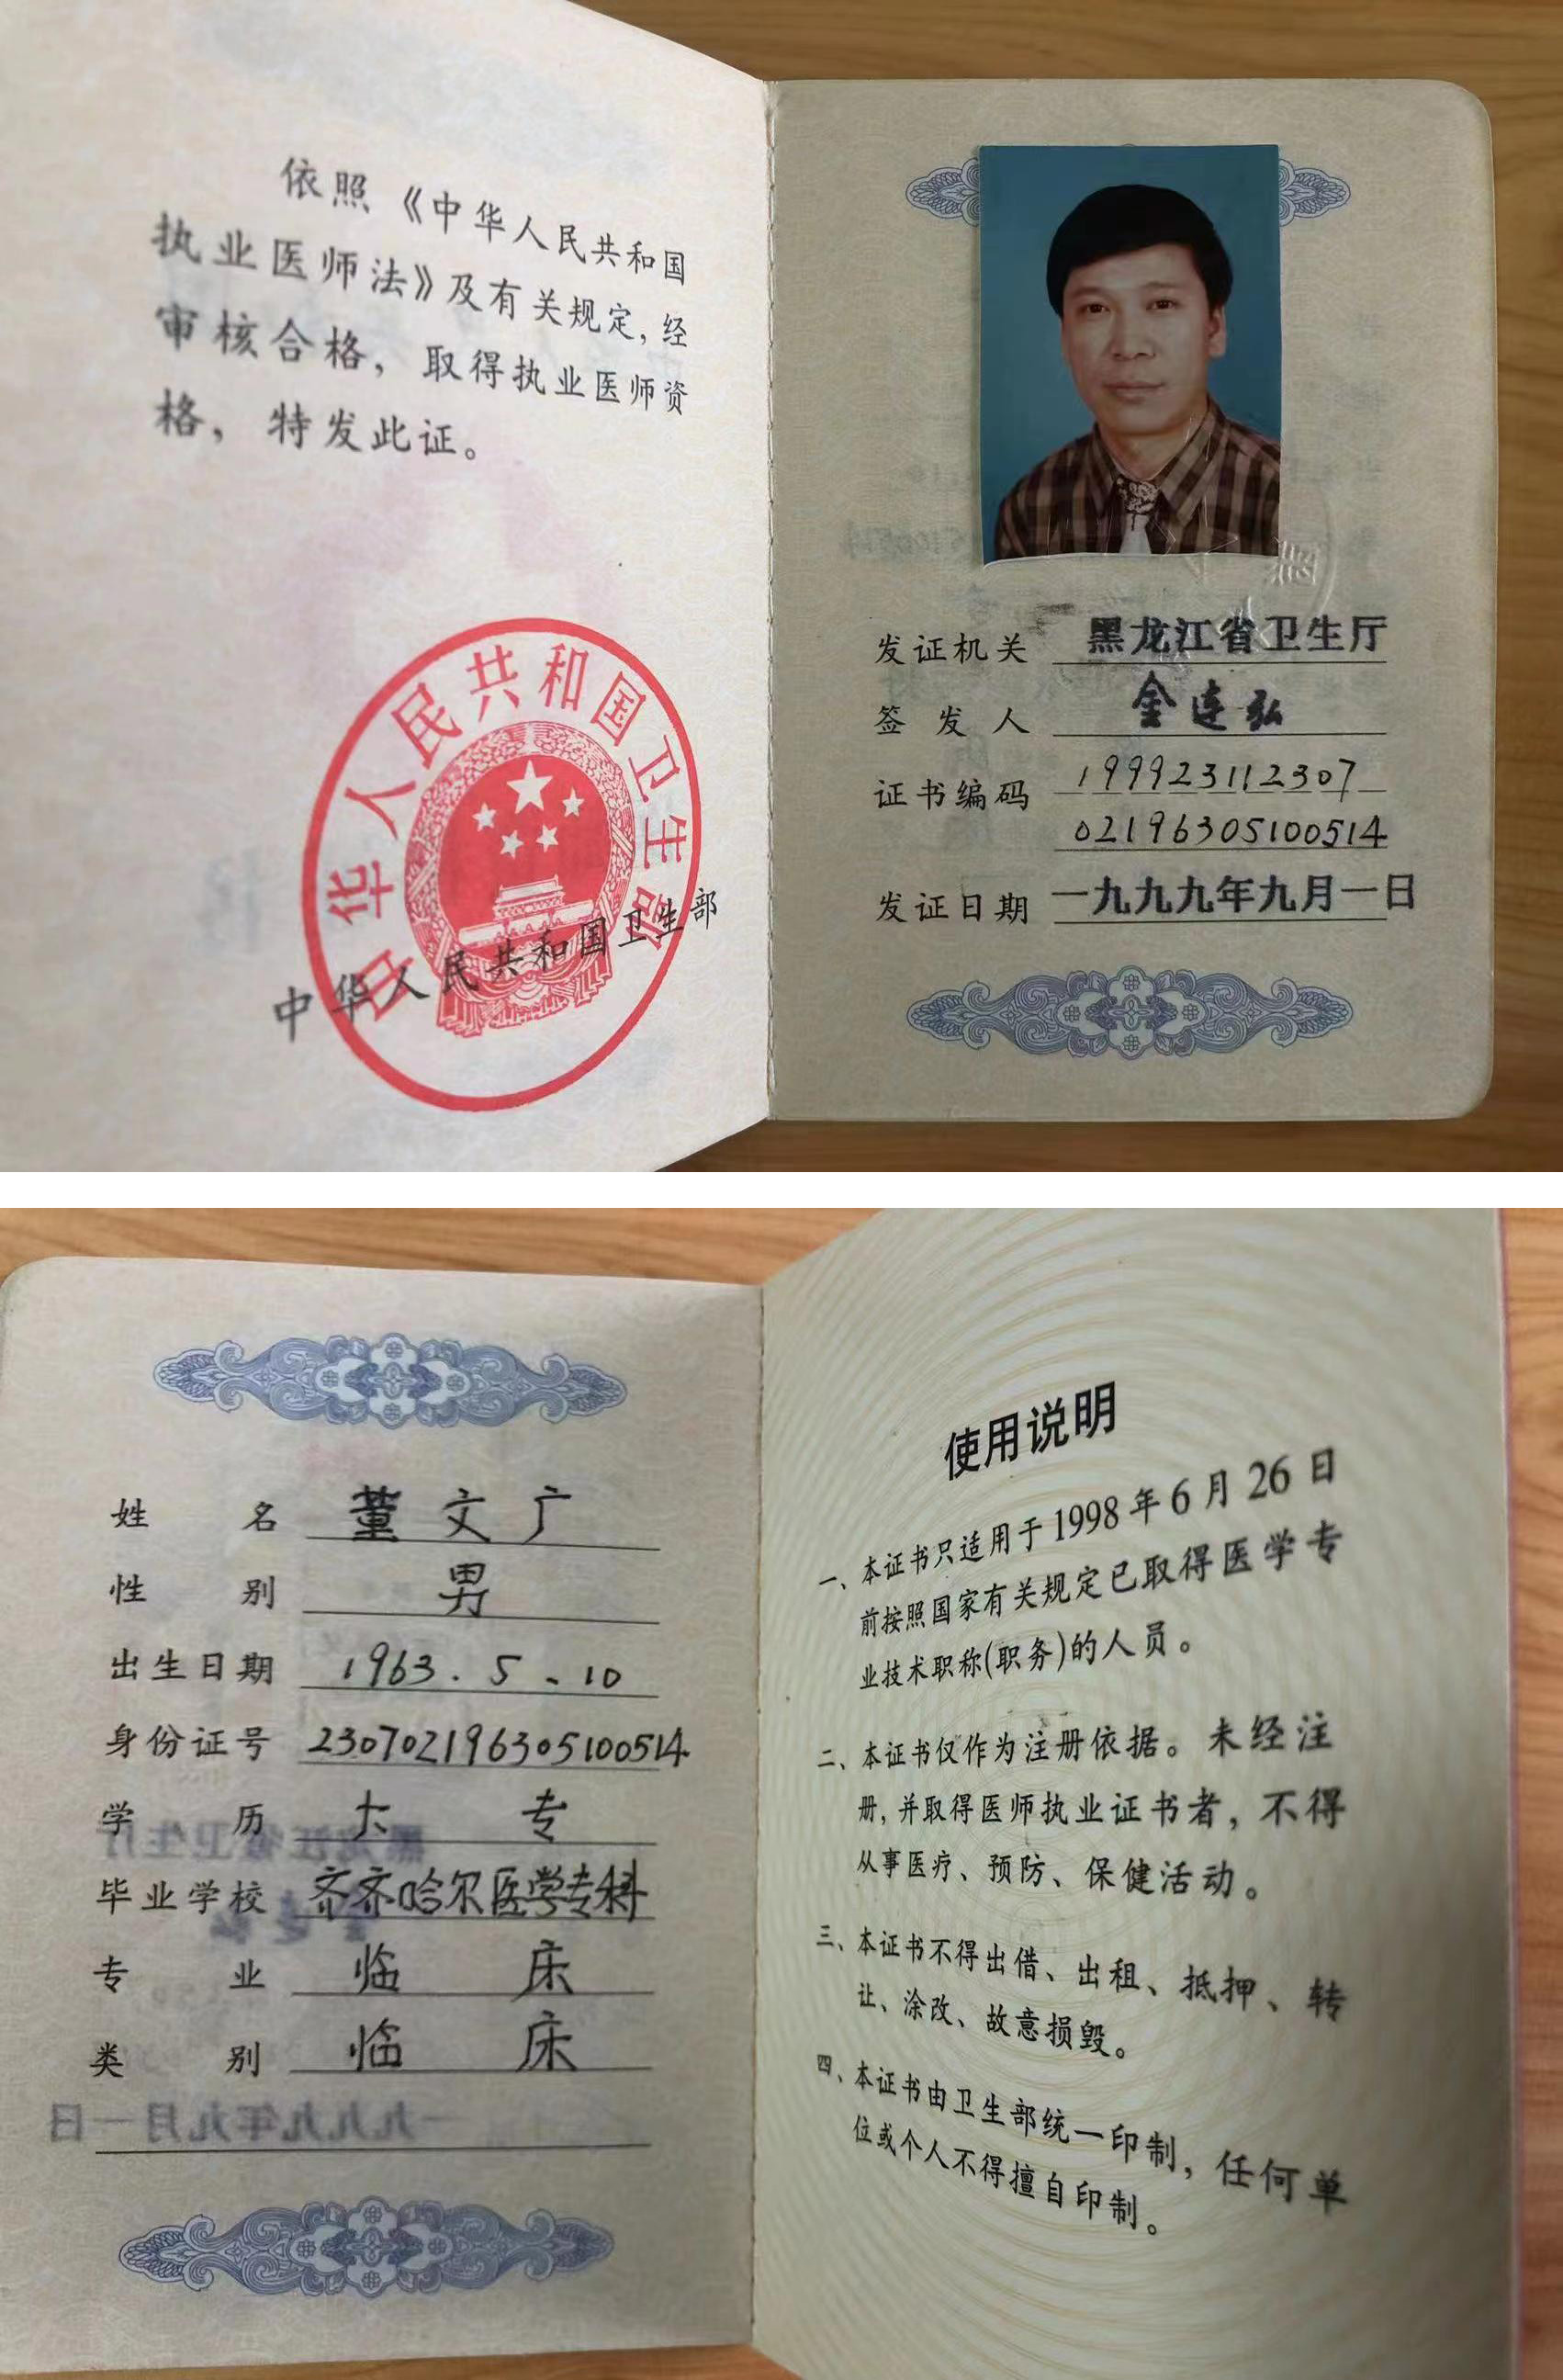 依照《中华人民共和国
执业医师法》及有关规定,经
审核合格,取得执业医师资
格,特发此证。
中华人民共和国卫生部
中华人民共和国卫生部
发证机关 黑龙江省卫生厅
签发人 金连弘
证书编码 199923112307
02196305100514
发证日期 一九九九年九月一日
姓名 董文广
性别 男
出生日期 1963.5.10
身份证号 230702196305100514
学历 大专
毕业学校 齐齐哈尔医学专科
专业 临床
类别 临床
使用说明
一、本证书只适用于1998年6月26日
前按照国家有关规定已取得医学专
业技术职称(职务)的人员。
二、本证书仅作为注册依据。未经注
册,并取得医师执业证书者,不得
从事医疗、预防、保健活动。
三、本证书不得出借、出租、抵押、转
让、涂改、故意损毁。
四、本证书由卫生部统一印制,任何单
位或个人不得擅自印制。